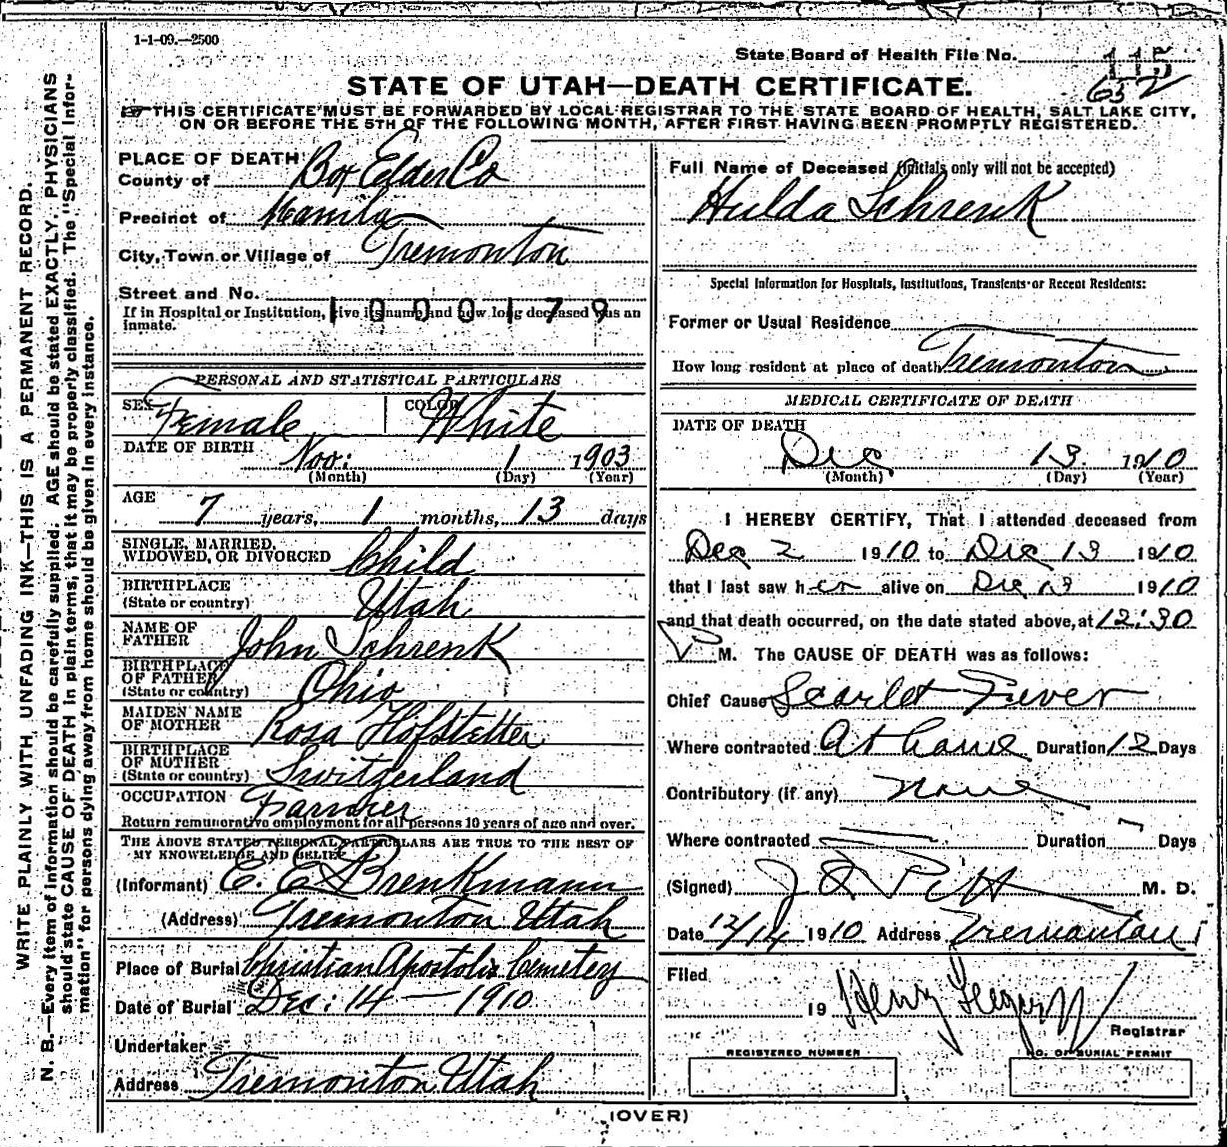 1-1-09.—2500
State Board of Health File No. 115
652
STATE OF UTAH—DEATH CERTIFICATE.
THIS CERTIFICATE MUST BE FORWARDED BY LOCAL REGISTRAR TO THE STATE BOARD OF HEALTH, SALT LAKE CITY,
ON OR BEFORE THE 5TH OF THE FOLLOWING MONTH, AFTER FIRST HAVING BEEN PROMPTLY REGISTERED.
WRITE PLAINLY WITH UNFADING INK—THIS IS A PERMANENT RECORD.
N. B.—Every item of information should be carefully supplied. AGE should be stated EXACTLY. PHYSICIANS
should state CAUSE OF DEATH in plain terms, that it may be properly classified. The "Special Infor-
mation" for persons dying away from home should be given in every instance.
PLACE OF DEATH
County of Box Elder Co
Precinct of Manila
City, Town or Village of Tremonton
Street and No.
1000179
If in Hospital or Institution, give its name and how long deceased was an
inmate.
PERSONAL AND STATISTICAL PARTICULARS
SEX Female COLOR White
DATE OF BIRTH Nov: 1 1903
(Month) (Day) (Year)
AGE
7 years, 1 months, 13 days
SINGLE, MARRIED,
WIDOWED, OR DIVORCED Child
BIRTHPLACE
(State or country) Utah
NAME OF
FATHER John Schrenk
BIRTHPLACE
OF FATHER
(State or country) Ohio
MAIDEN NAME
OF MOTHER Rosa Hofstetter
BIRTHPLACE
OF MOTHER
(State or country) Switzerland
OCCUPATION Farmer
Return remunerative employment for all persons 10 years of age and over.
THE ABOVE STATED PERSONAL PARTICULARS ARE TRUE TO THE BEST OF
MY KNOWELEDGE AND BELIEF
(Informant) E. E. Brenkmann
(Address) Tremonton Utah
Place of Burial Christian Apostolic Cemetey
Date of Burial Dec: 14 — 1910
Undertaker
Address Tremonton Utah
Full Name of Deceased (Initials only will not be accepted)
Hulda Schrenk
Special Information for Hospitals, Institutions, Transients or Recent Residents:
Former or Usual Residence
How long resident at place of death Tremonton
MEDICAL CERTIFICATE OF DEATH
DATE OF DEATH
Dec 13 1910
(Month) (Day) (Year)
I HEREBY CERTIFY, That I attended deceased from
Dec 2 1910 to Dec 13 1910
that I last saw h er alive on Dec 13 1910
and that death occurred, on the date stated above, at 12:30
P M. The CAUSE OF DEATH was as follows:
Chief Cause Scarlet Fever
Where contracted At home Duration 12 Days
Contributory (if any) None
Where contracted Duration Days
(Signed) M. D.
Date 12/14 1910 Address Tremonton
Filed
19 Henry Registrar
REGISTERED NUMBER NO. OF BURIAL PERMIT
(OVER)